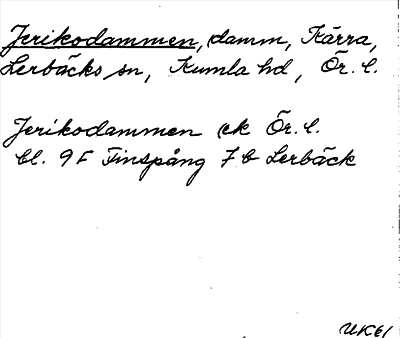 Jerikodammen, damm, Kärra,
Lerbäcks sn, Kumla hd, Ör. l.
Jerikodammen ek Ör. l.
bl. 9 F Finspång 7 b Lerbäck
UK61